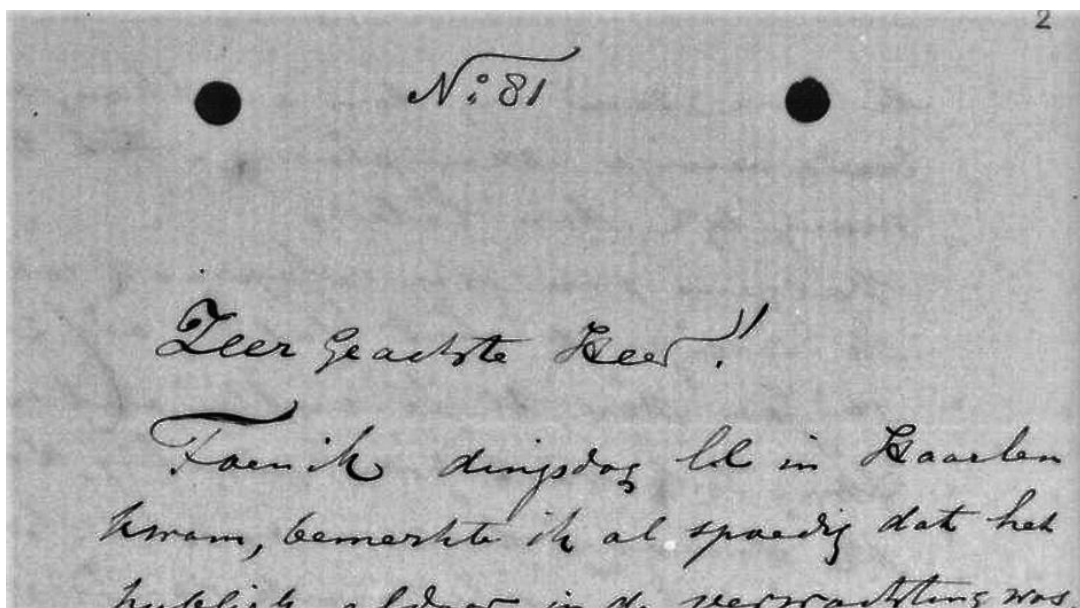 2
No: 81
Zeer Geachte Heer!!
Toen ik dingsdag ll in Haarlem
kwam, bemerkte ik al spoedig dat het
publiek aldaar in de verwachting was